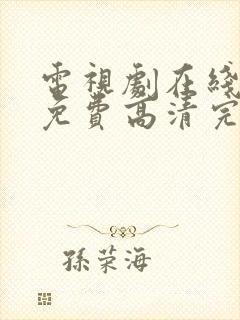 電視劇在綫
免費高清完
孫荣海